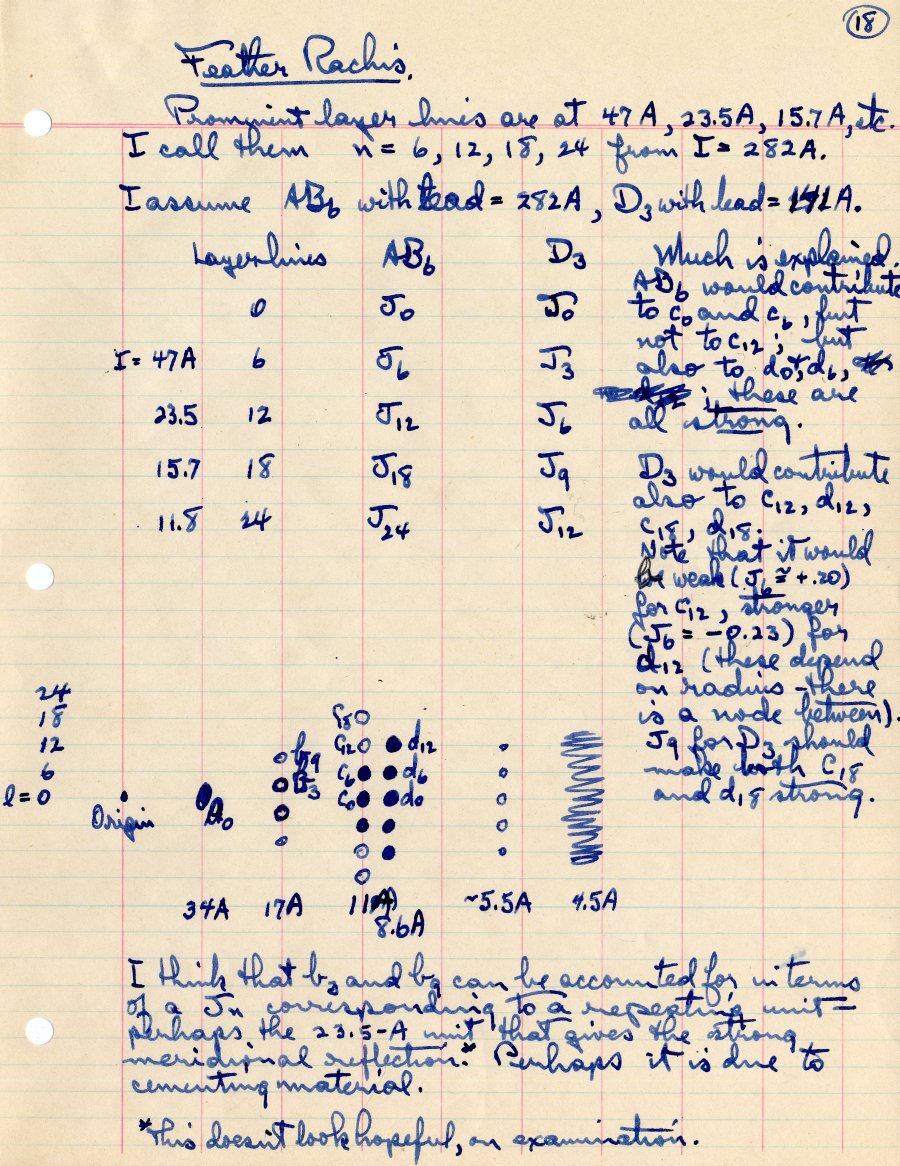 18
Feather Rachis.
Prominent layer lines are at 47A, 23.5A, 15.7A, etc.
I call them n = 6, 12, 18, 24 from I = 282A.
I assume AB6 with lead = 282A, D3 with lead = 141A.
Layer lines AB6 D3
0 J0 J0
I = 47A 6 J6 J3
23.5 12 J12 J6
15.7 18 J18 J9
11.8 24 J24 J12
Much is explained.
AB6 would contribute
to c0 and c6, but
not to c12; but
also to d0, d6,
; these are
all strong.
D3 would contribute
also to c12, d12,
c18, d18.
Note that it would
be weak (J6 ≅ +.20)
for c12, stronger
(J6 = -0.23) for
d12 (these depend
on radius - there
is a node between).
J9 for D3 should
make both C18
and d18 strong.
24
18
12
6
l = 0
Origin
a0
b9
b3
c18
c12
c6
c0
d12
d6
d0
34A 17A 11A 8.6A ~5.5A 4.5A
I think that b3 and b9 can be accounted for in terms
of a Jn corresponding to a repeating unit =
perhaps the 23.5-A unit that gives the strong
meridional reflection.* Perhaps it is due to
cementing material.
*This doesn't look hopeful, on examination.